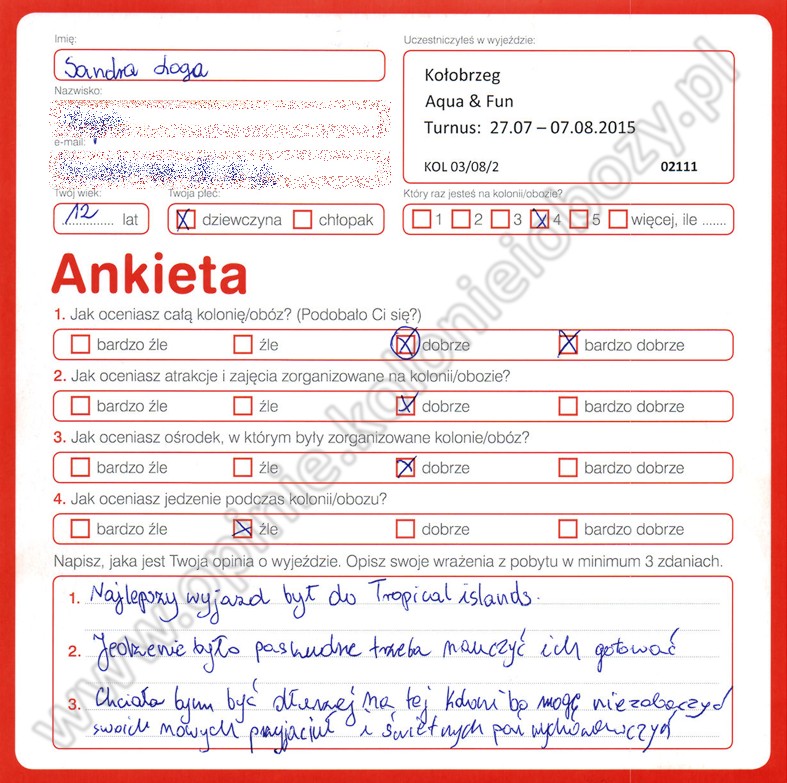 Imię:
Sandra Łoga
Nazwisko:
e-mail:
Twój wiek:
12 lat
Twoja płeć:
dziewczyna chłopak
Uczestniczyłeś w wyjeździe:
Kołobrzeg
Aqua & Fun
Turnus: 27.07 – 07.08.2015
KOL 03/08/2 02111
Który raz jesteś na kolonii/obozie?
1 2 3 4 5 więcej, ile .......
Ankieta
1. Jak oceniasz całą kolonię/obóz? (Podobało Ci się?)
bardzo źle źle dobrze bardzo dobrze
2. Jak oceniasz atrakcje i zajęcia zorganizowane na kolonii/obozie?
bardzo źle źle dobrze bardzo dobrze
3. Jak oceniasz ośrodek, w którym były zorganizowane kolonie/obóz?
bardzo źle źle dobrze bardzo dobrze
4. Jak oceniasz jedzenie podczas kolonii/obozu?
bardzo źle źle dobrze bardzo dobrze
Napisz, jaka jest Twoja opinia o wyjeździe. Opisz swoje wrażenia z pobytu w minimum 3 zdaniach.
1. Najlepszy wyjazd był do Tropical islands.
2. Jedzenie było paskudne trzeba nauczyć ich gotować
3. Chciała bym być dłużej na tej koloni bo mogę niezobaczyć
swoich nowych przyjaciuł i świetnych pań wychowawczyń
www.opinie.kolonieiobozy.pl